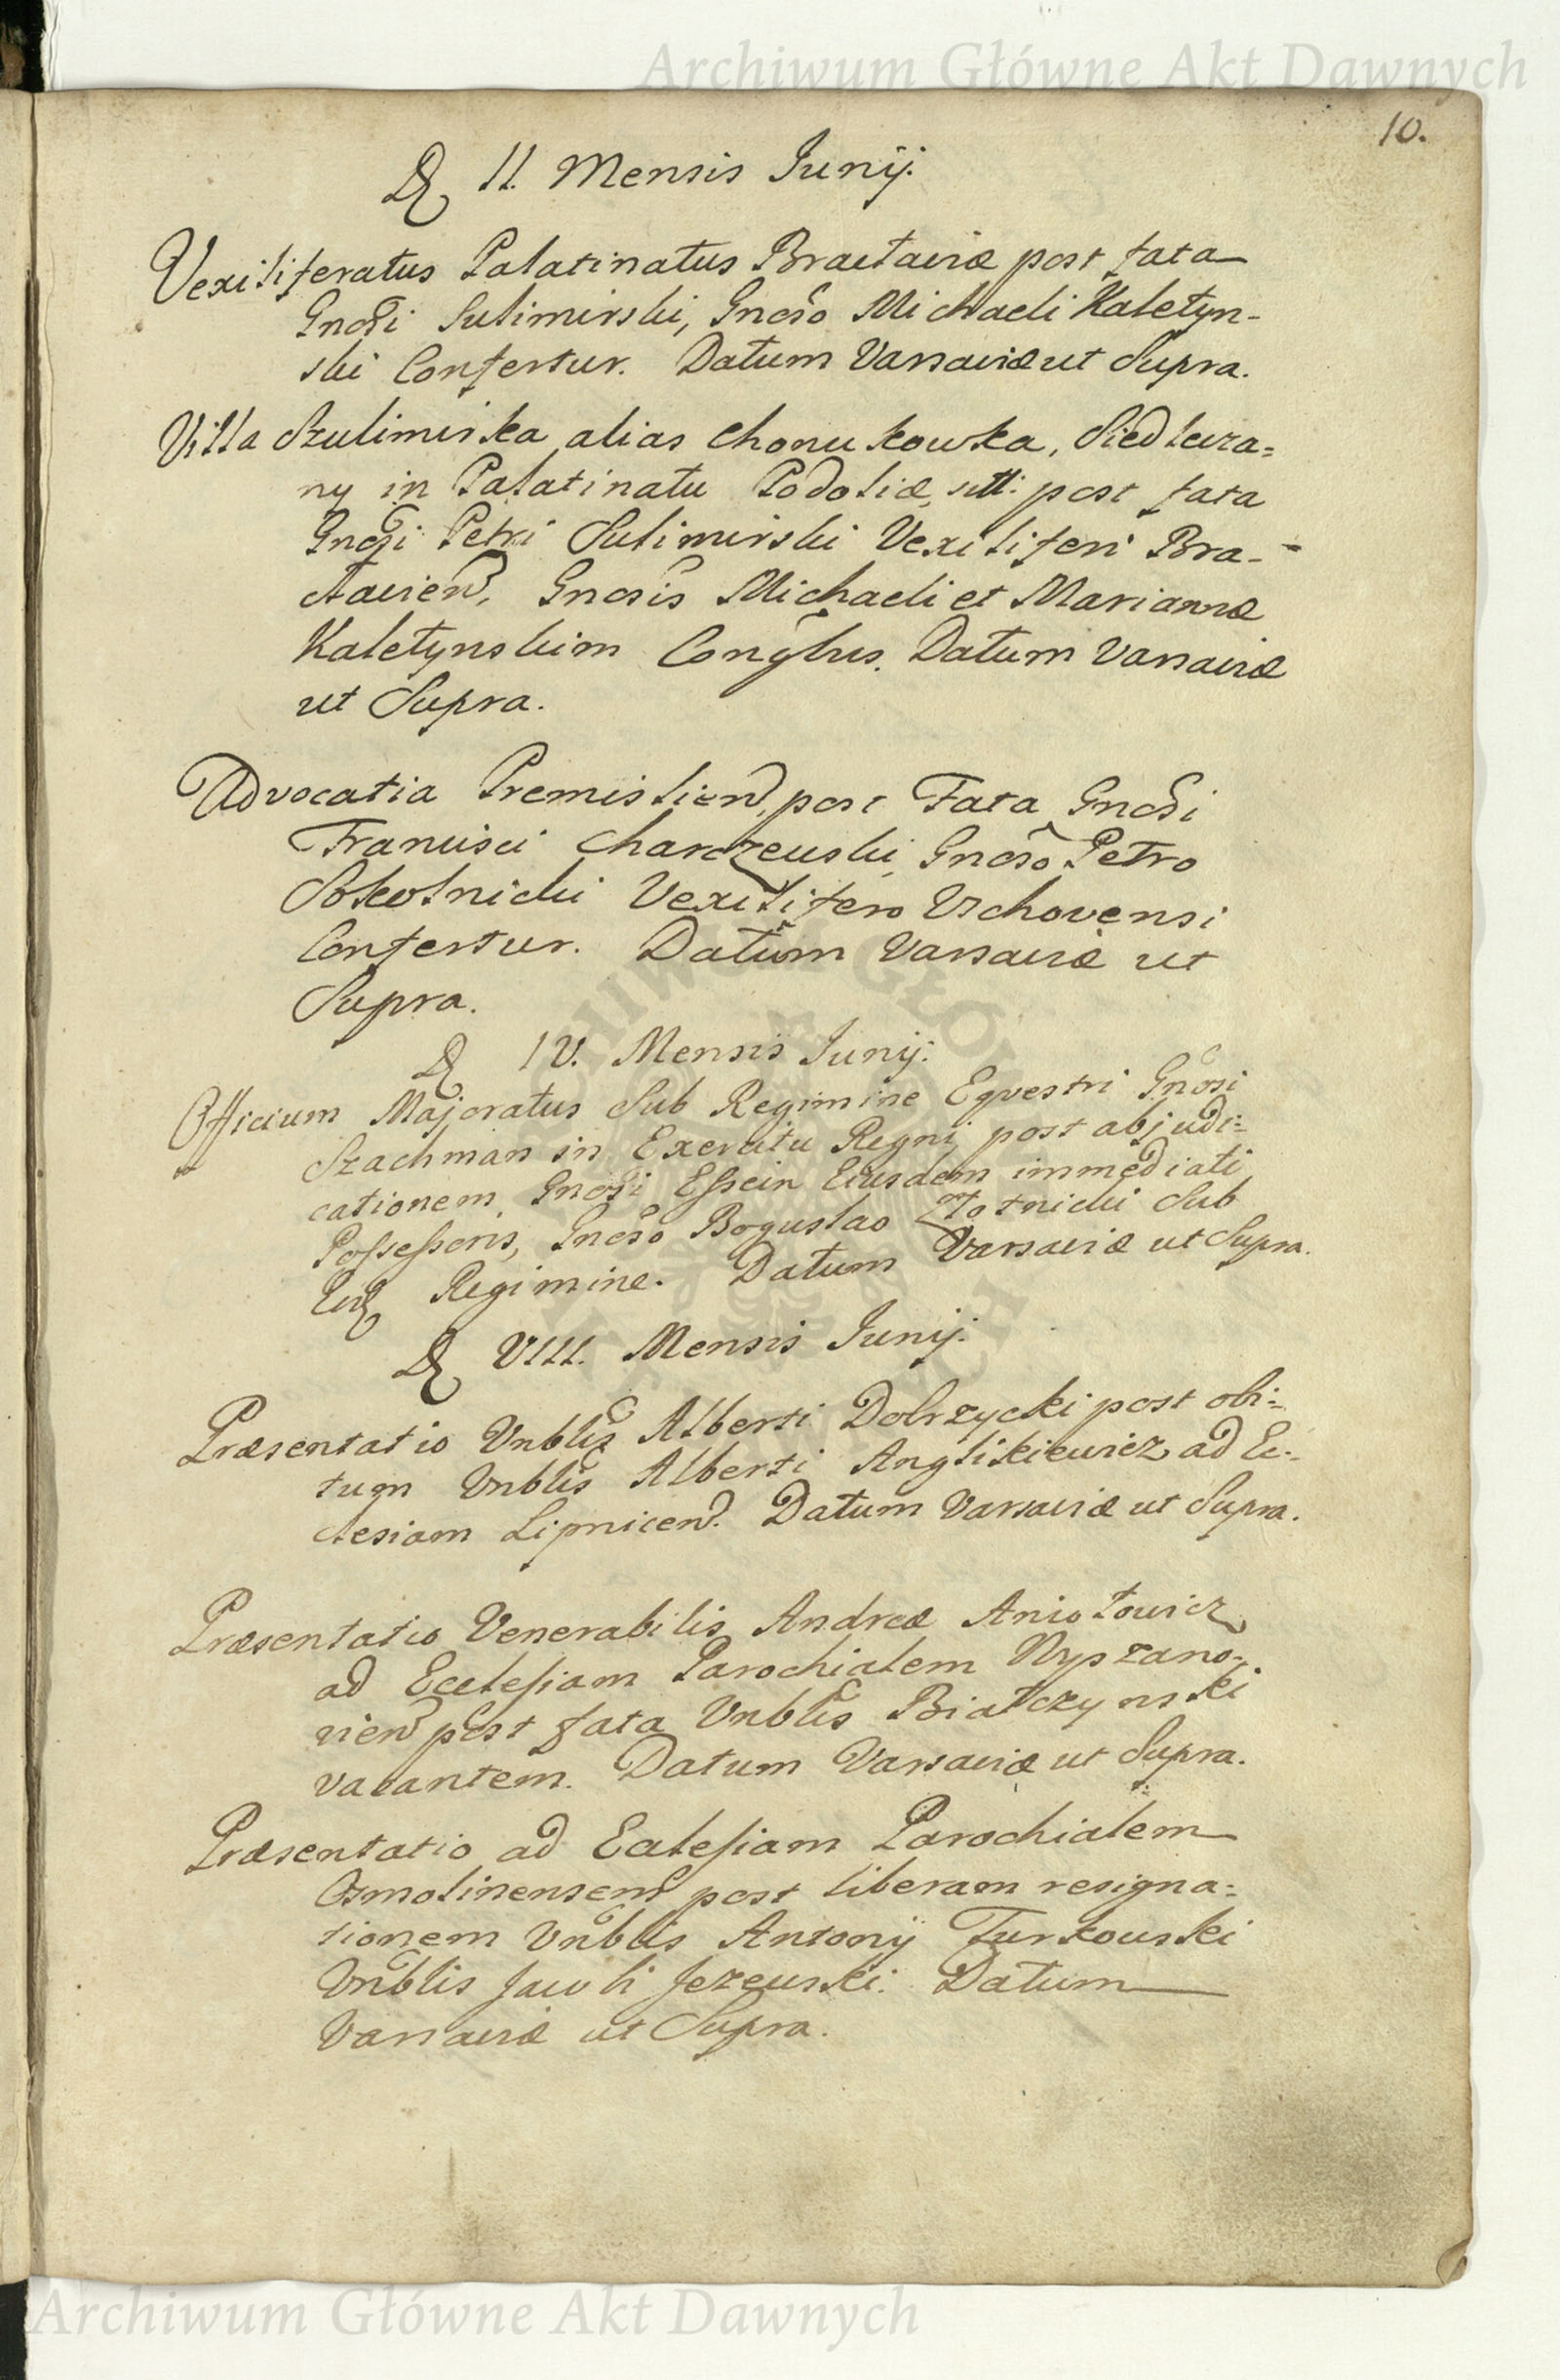 Archiwum Główne Akt Dawnych
10.
D 11. Mensis Junij.
Vexiliferatus Palatinatus Braclaviæ post fata
Gnosi Sulimirski, Gnoso Michaeli Kaletyn-
ski Confertur. Datum Varsaviæ ut Supra.
Villa Szulimirska alias Chonukowka, Siedlcza=
ny in Palatinatu Podoliæ, sitt: post fata
Gnosi Petri Sulimirski Vexiliferi Bra-
clavien, Gnosis Michaeli et Mariannæ
Kaletynskim Congbus. Datum Varsaviæ
ut Supra.
Advocatia Premislien, post Fata Gnosi
Francisci Charczewski, Gnoso Petro
Sokolnicki Vexilifero Wschovensi
Confertur. Datum Varsaviæ ut
Supra.
D IV. Mensis Junij.
Officium Majoratus Sub Regimine Eqvestri Gnosi
Szachman in Exercitu Regni post abjudi=
cationem Gnosi Essein Eiusdem immediati
Possessoris, Gnoso Boguslao Złotnicki Sub
Eod Regimine. Datum Varsaviæ ut Supra.
D VIII. Mensis Junij.
Præsentatio Vnblis Alberti Dobrzycki post obi=
tum Vnblis Alberti Anglikiewicz ad Ec=
clesiam Lipnicen. Datum Varsaviæ ut Supra.
Præsentatio Venerabilis Andreæ Aniołowicz
ad Ecclesiam Parochialem Ryszano-
vien post fata Vnblis Białczynski
vacantem. Datum Varsaviæ ut Supra.
Præsentatio ad Eclesiam Parochialem
Osmolinensem post liberam resigna=
tionem Vnblis Antonij Turkowski
Vnblis Jacobi Jezewski. Datum
Varsaviæ ut Supra.
Archiwum Główne Akt Dawnych